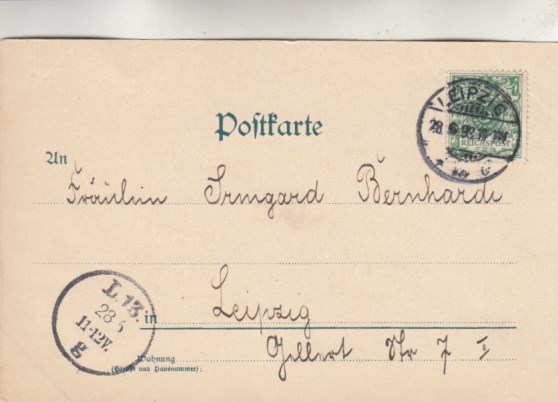 Postkarte
An
LEIPZIG
REICHSPOST
Fräulein Irmgard Bernhardi
L. 13.
28 5
11-12V.
g
in Leipzig
Gellert Str 7 I
Wohnung
(Straße und Hausnummer):